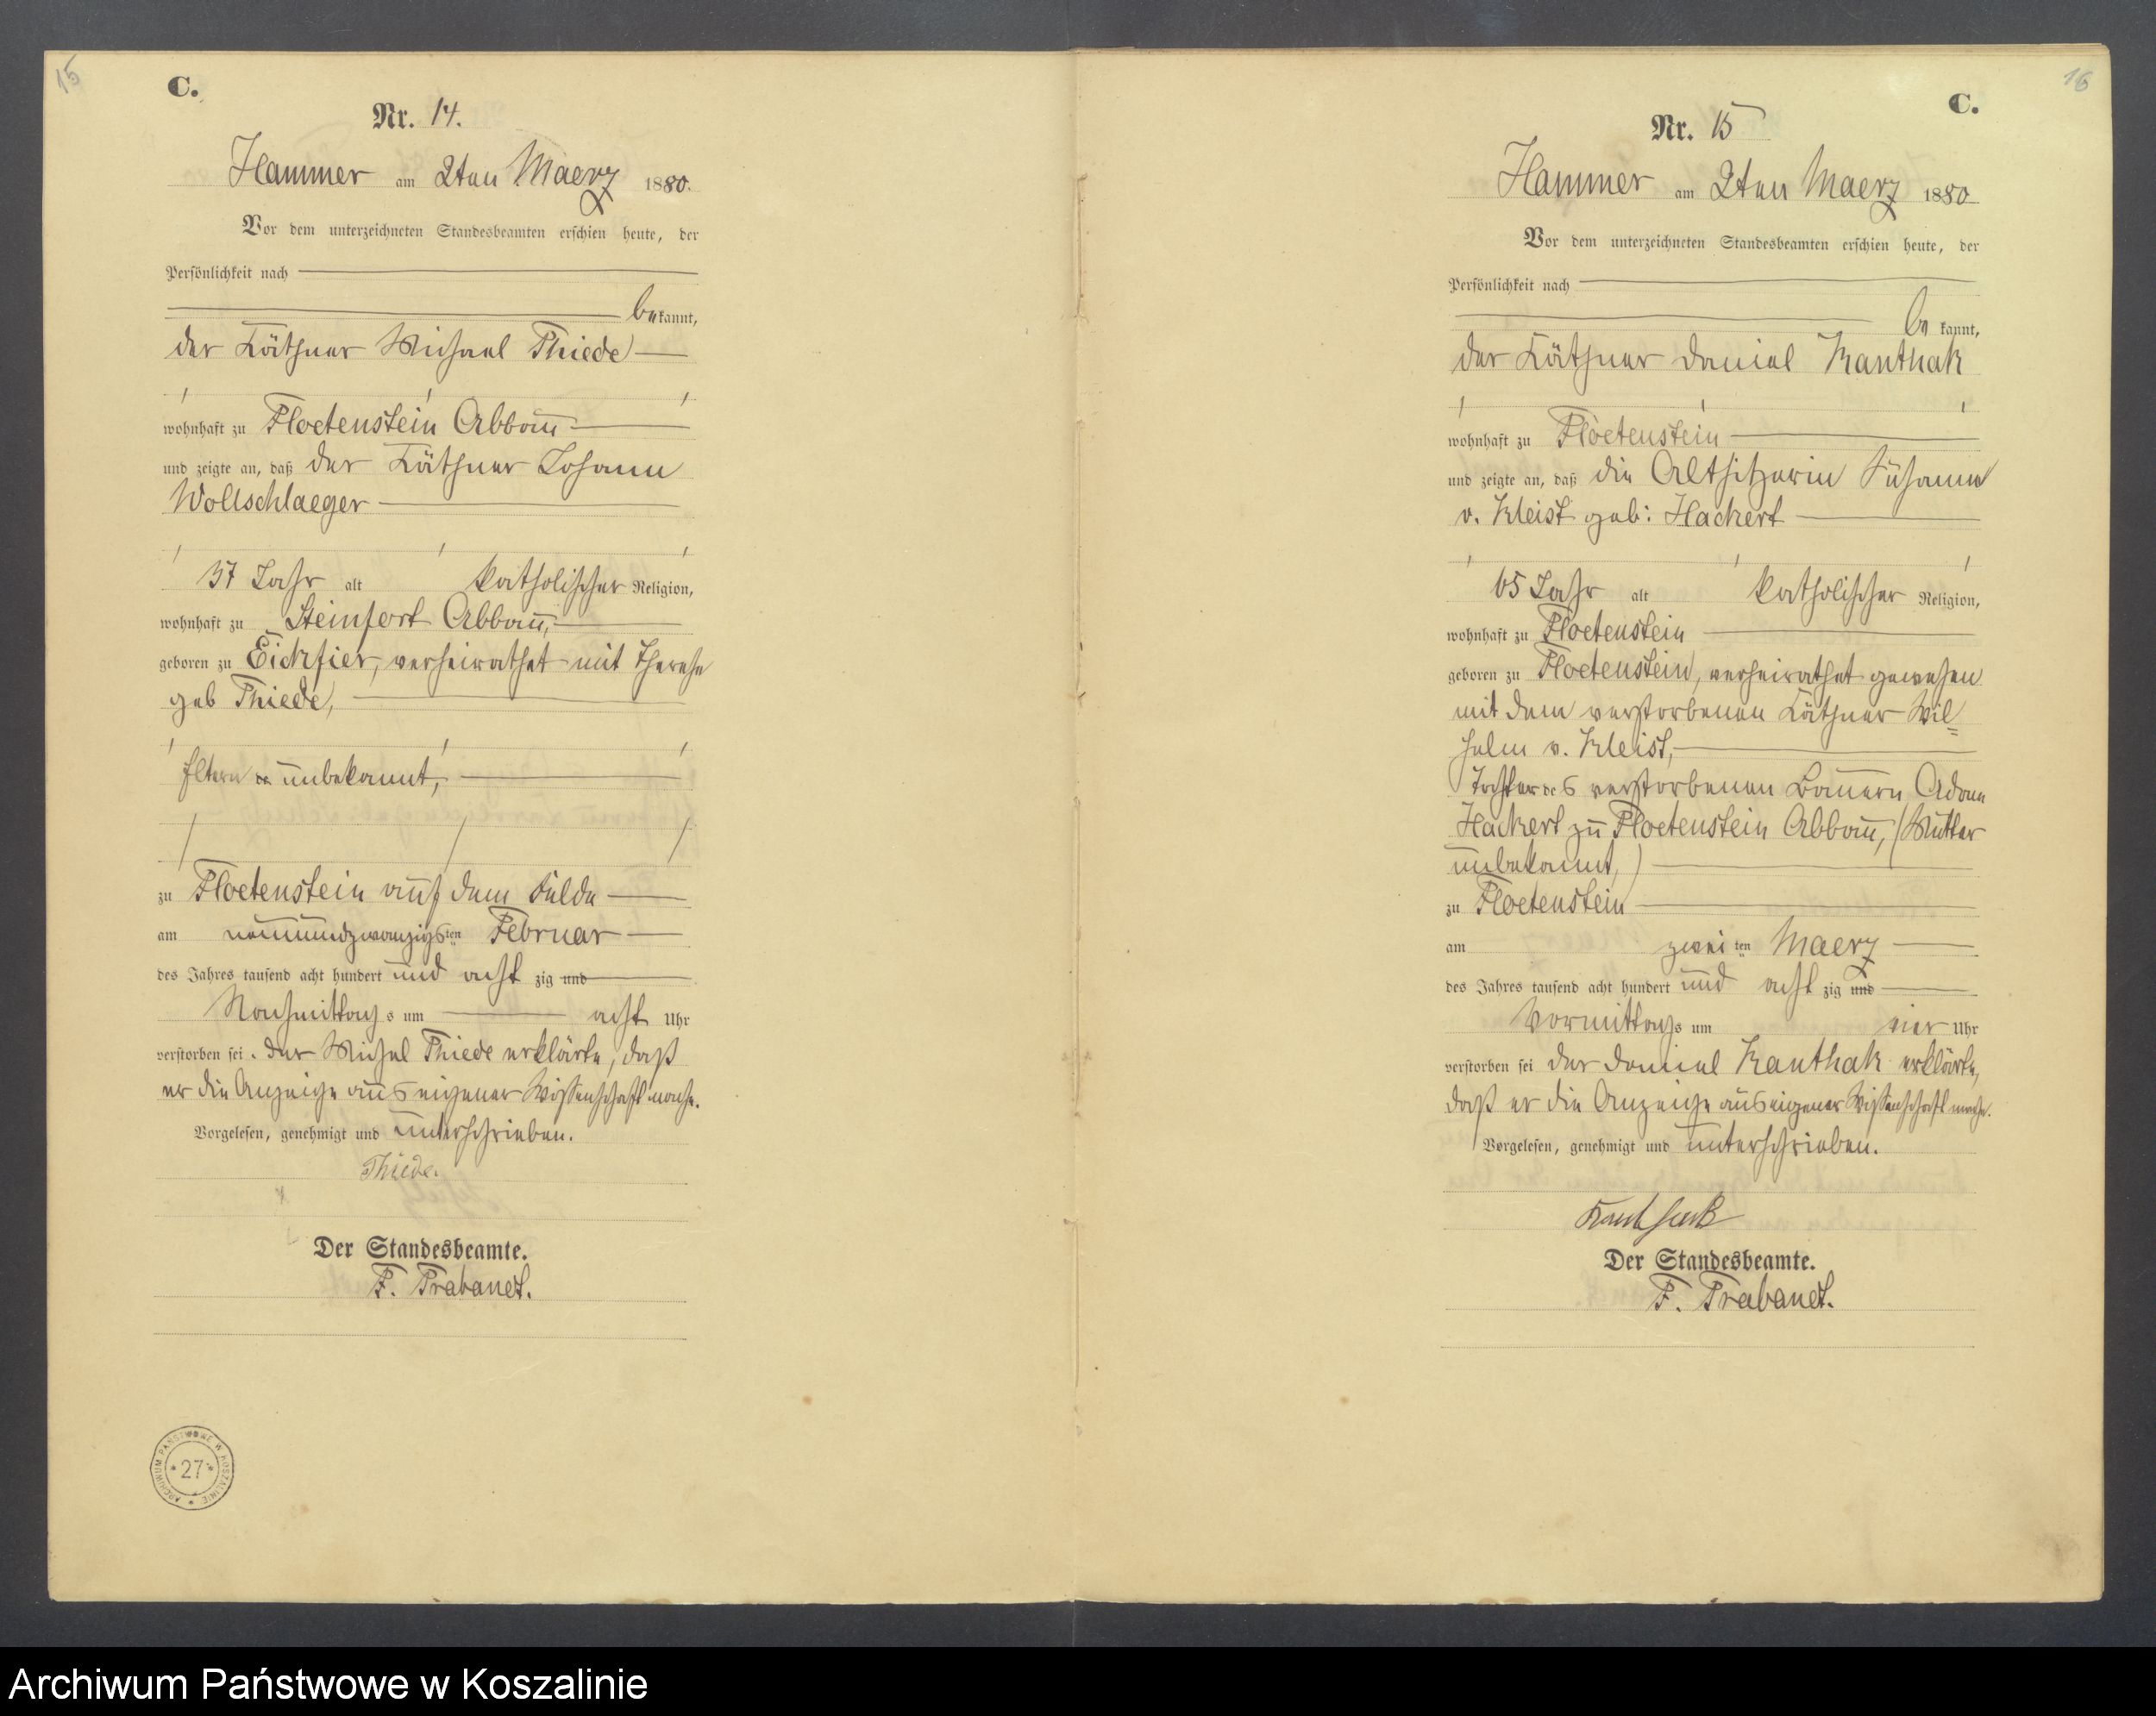 15
C.
Nr. 14.
Hammer am 2ten Maerz 1880.
Vor dem unterzeichneten Standesbeamten erschien heute, der
Persönlichkeit nach
bekannt,
der Käthner Michael Thiede
wohnhaft zu Floetenstein Abbau
und zeigte an, daß der Käthner Johann
Wollschlaeger
37 Jahr alt katholischer Religion,
wohnhaft zu Steinfort Abbau,
geboren zu Eickfier, verheirathet mit Therese
geb Thiede,
Eltern unbekannt,
zu Floetenstein auf dem Felde
am neunundzwanzigsten Februar
des Jahres tausend acht hundert und acht zig und
Nachmittags um acht Uhr
verstorben sei. der Michel Thiede erklärte, daß
er die Anzeige aus eigener Wissenschaft mache.
Vorgelesen, genehmigt und unterschrieben.
Thiede.
Der Standesbeamte.
F. Prabanct.
ARCHIWUM PAŃSTWOWE W KOSZALINIE
* 27 *
16
C.
Nr. 15
Hammer am 2ten Maerz 1880
Vor dem unterzeichneten Standesbeamten erschien heute, der
Persönlichkeit nach
be kannt,
der Käthner Daniel Kanthak
wohnhaft zu Floetenstein
und zeigte an, daß die Altsitzerin Susanne
v. Kleist geb: Hackert
65 Jahr alt katholischer Religion,
wohnhaft zu Floetenstein
geboren zu Floetenstein, verheirathet gewesen
mit dem verstorbenen Käthner Wil=
helm v. Kleist,
Tochter des verstorbenen Bauern Adam
Hackert zu Floetenstein Abbau, (Mutter
unbekannt,)
zu Floetenstein
am zwei ten Maerz
des Jahres tausend acht hundert und acht zig und
Vormittags um vier Uhr
verstorben sei der Daniel Kanthak erklärte,
daß er die Anzeige aus eigener Wissenschaft mache.
Vorgelesen, genehmigt und unterschrieben.
Kanthack
Der Standesbeamte.
F. Prabanct.
Archiwum Państwowe w Koszalinie